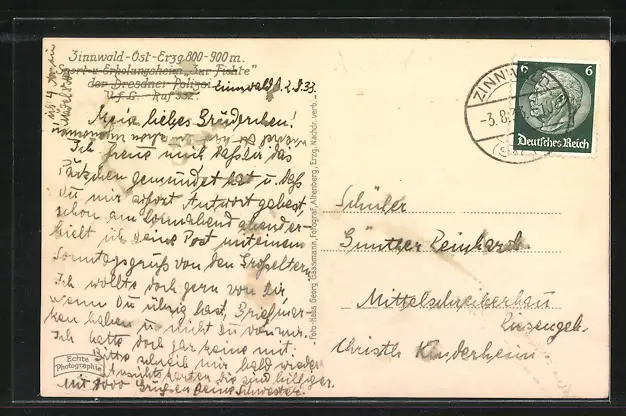 Zinnwald-Ost-Erzg. 800-900 m.
Sport- u. Erholungsheim „Zur Fichte"
der Dresdner Polizei
Ruf 332.
Zinnwald d. 2.8.33.
Mein liebes Brüderchen!
Ich freue mich daß dir das
Päckchen gemundet hat u. daß
du mir sofort Antwort gabest,
schon am Sonnabend abend er-
hielt ich deine Post mit einem
Sonntagsgruß von den Großeltern.
Ich wollte doch gern von dir,
wenn du übrig hast, Briefmar-
ken haben u. nicht du von mir.
Ich hatte doch gar keine mit.
Bitte schreib mir bald wieder
Ansichtskarten die sind billiger.
Mit 1000 Grüßen deine Schwester.
Echte
Photographie
Foto Hans Georg Gassmann, Fotograf, Altenberg, Erzg. Nachdr. verb.
ZINNWALD
-3.8.
6 6
Deutsches Reich
Schüler
Günther Reinhardt
Christl. Kinderheim